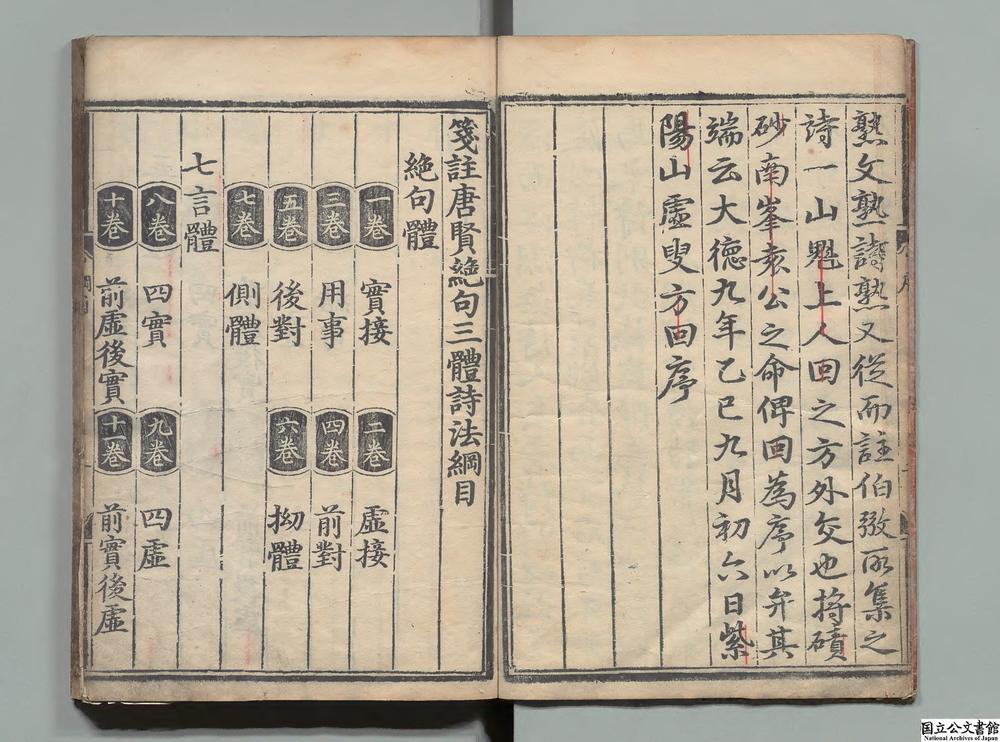 熟文熟詩熟又從而註伯弜所集之
詩一山魁上人回之方外交也將磧
砂南峯袁公之命俾回為序以弁其
端云大德九年乙巳九月初六日紫
陽山虛叟方回序
箋註唐賢絕句三體詩法綱目
絕句體
一卷 實接 二卷 虛接
三卷 用事 四卷 前對
五卷 後對 六卷 拗體
七卷 側體
七言體
八卷 四實 九卷 四虛
十卷 前虛後實 十一卷 前實後虛
国立公文書館
National Archives of Japan